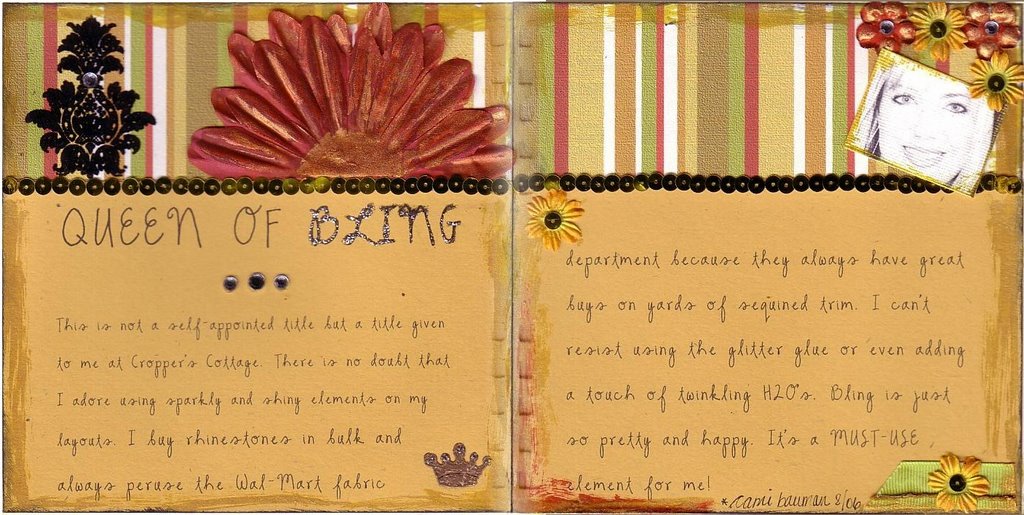 QUEEN OF BLING
This is not a self-appointed title but a title given
to me at Cropper's Cottage. There is no doubt that
I adore using sparkly and shiny elements on my
layouts. I buy rhinestones in bulk and
always peruse the Wal-Mart fabric
department because they always have great
buys on yards of sequined trim. I can't
resist using the glitter glue or even adding
a touch of twinkling H2O's. Bling is just
so pretty and happy. It's a MUST-USE
element for me!
*Cami Bauman 8/06